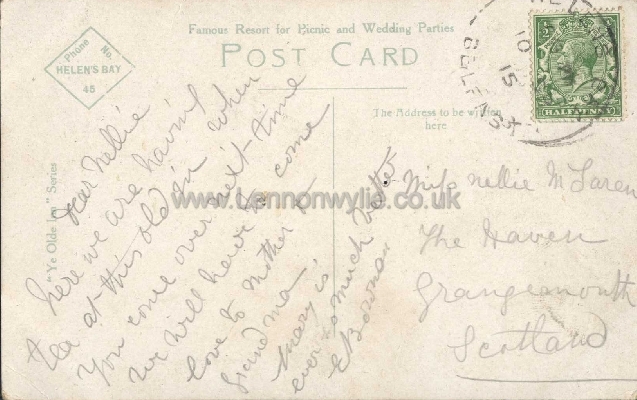 Famous Resort for Picnic and Wedding Parties
POST CARD
Phone No.
HELEN'S BAY
45
"Ye Olde Inn" Series
The Address to be written
here
HALFPENNY
10
15
Dear Nellie
here we are having
tea at this old inn when
you come over next time
we will have to come
love to mother &
Grandma
Mary is
ever so much better
E Bowman
Miss Nellie McLaren
The Haven
Grangemouth
Scotland
www.Lennonwylie.co.uk